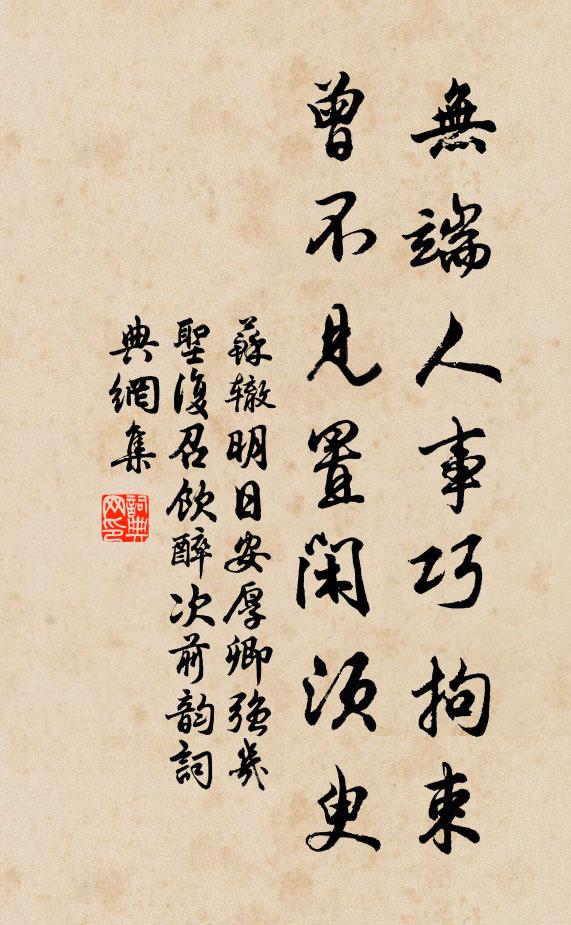 無端人事巧拘束
曾不見置閑須臾
蘇轍明日安厚卿強幾
聖復召飲醉次前韵詞
典網集
詞典网印